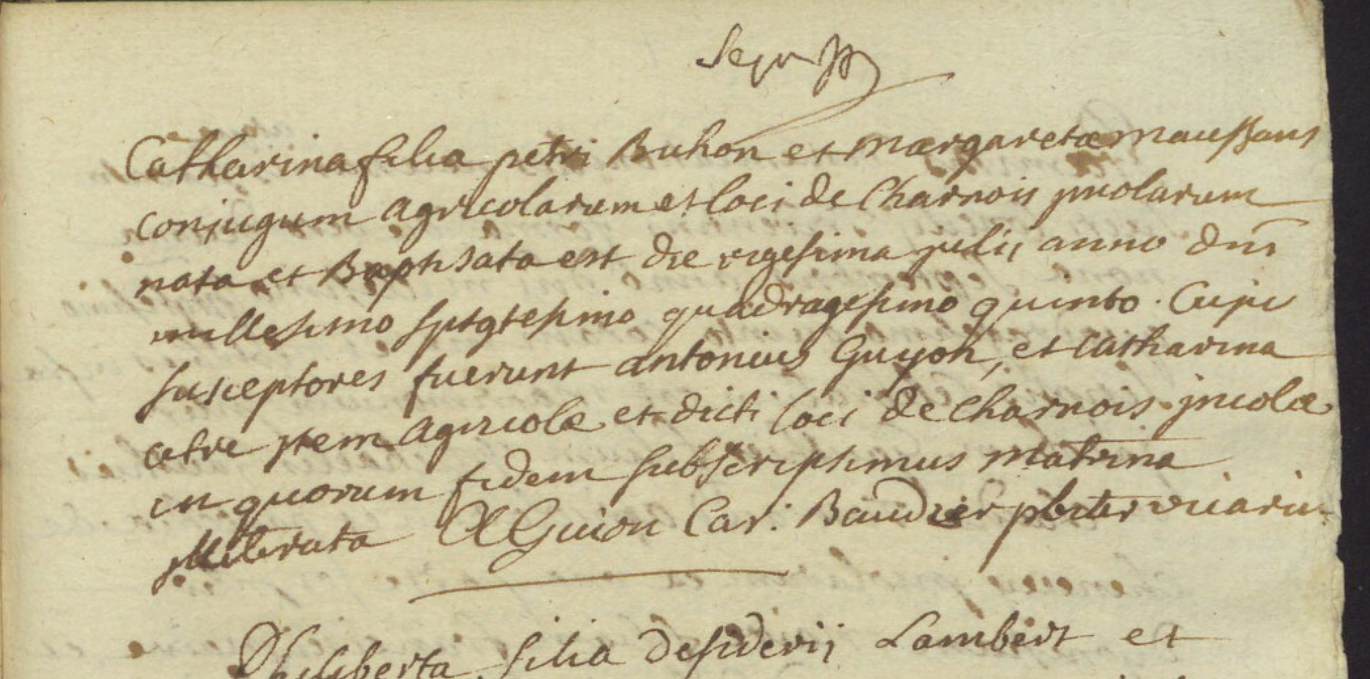 Catharina filia petri Buhon et Margaretæ Maussans
conjugum agricolarum et loci de Charnois jncolarum
nata et Baptisata est die vigesima julii anno dni
millesimo sptgtesimo quadragesimo quinto. Cuju
susceptores fuerunt antonius Guyon, et Catharina
jtem agricolæ et dicti loci de Charnois jncolæ
in quorum fidem subscripsimus matrina
jlliterata A Guion Car: Baudier pbiter vicariu
Philiberta filia desiderii Lambert et